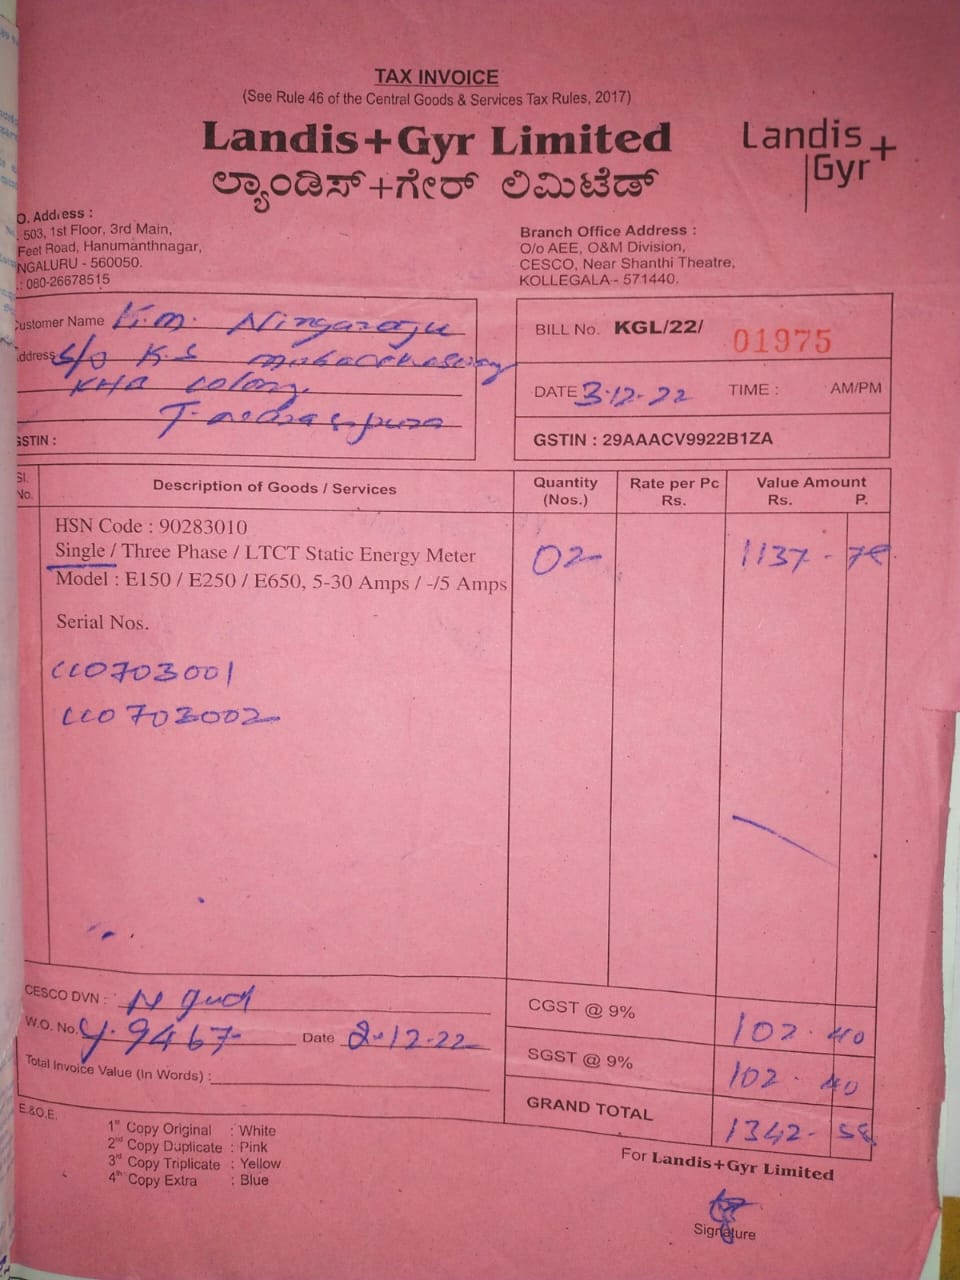 TAX INVOICE
(See Rule 46 of the Central Goods & Services Tax Rules, 2017)
Landis+Gyr Limited
ಲ್ಯಾಂಡಿಸ್+ಗೇರ್ ಲಿಮಿಟೆಡ್
Landis+
Gyr
O. Address :
503, 1st Floor, 3rd Main,
Feet Road, Hanumanthnagar,
NGALURU - 560050.
.: 080-26678515
Branch Office Address :
O/o AEE, O&M Division,
CESCO, Near Shanthi Theatre,
KOLLEGALA - 571440.
Customer Name K.m. Ningaraju
Address S/o K.S
KHB colony
GSTIN :
BILL No. KGL/22/ 01975
DATE 3.12.22 TIME : AM/PM
GSTIN : 29AAACV9922B1ZA
Sl. No. Description of Goods / Services Quantity (Nos.) Rate per Pc Rs. Value Amount Rs. P.
HSN Code : 90283010
Single / Three Phase / LTCT Static Energy Meter 02 1137 - 78
Model : E150 / E250 / E650, 5-30 Amps / -/5 Amps
Serial Nos.
CC0703001
CC0703002
CESCO DVN : N gudi
W.O. No. Y. 9467 Date 2.12.22
Total Invoice Value (In Words) :
CGST @ 9% 102 . 40
SGST @ 9% 102 . 40
GRAND TOTAL 1342 - 58
E.&O.E.
1st Copy Original : White
2nd Copy Duplicate : Pink
3rd Copy Triplicate : Yellow
4th Copy Extra : Blue
For Landis+Gyr Limited
Signature